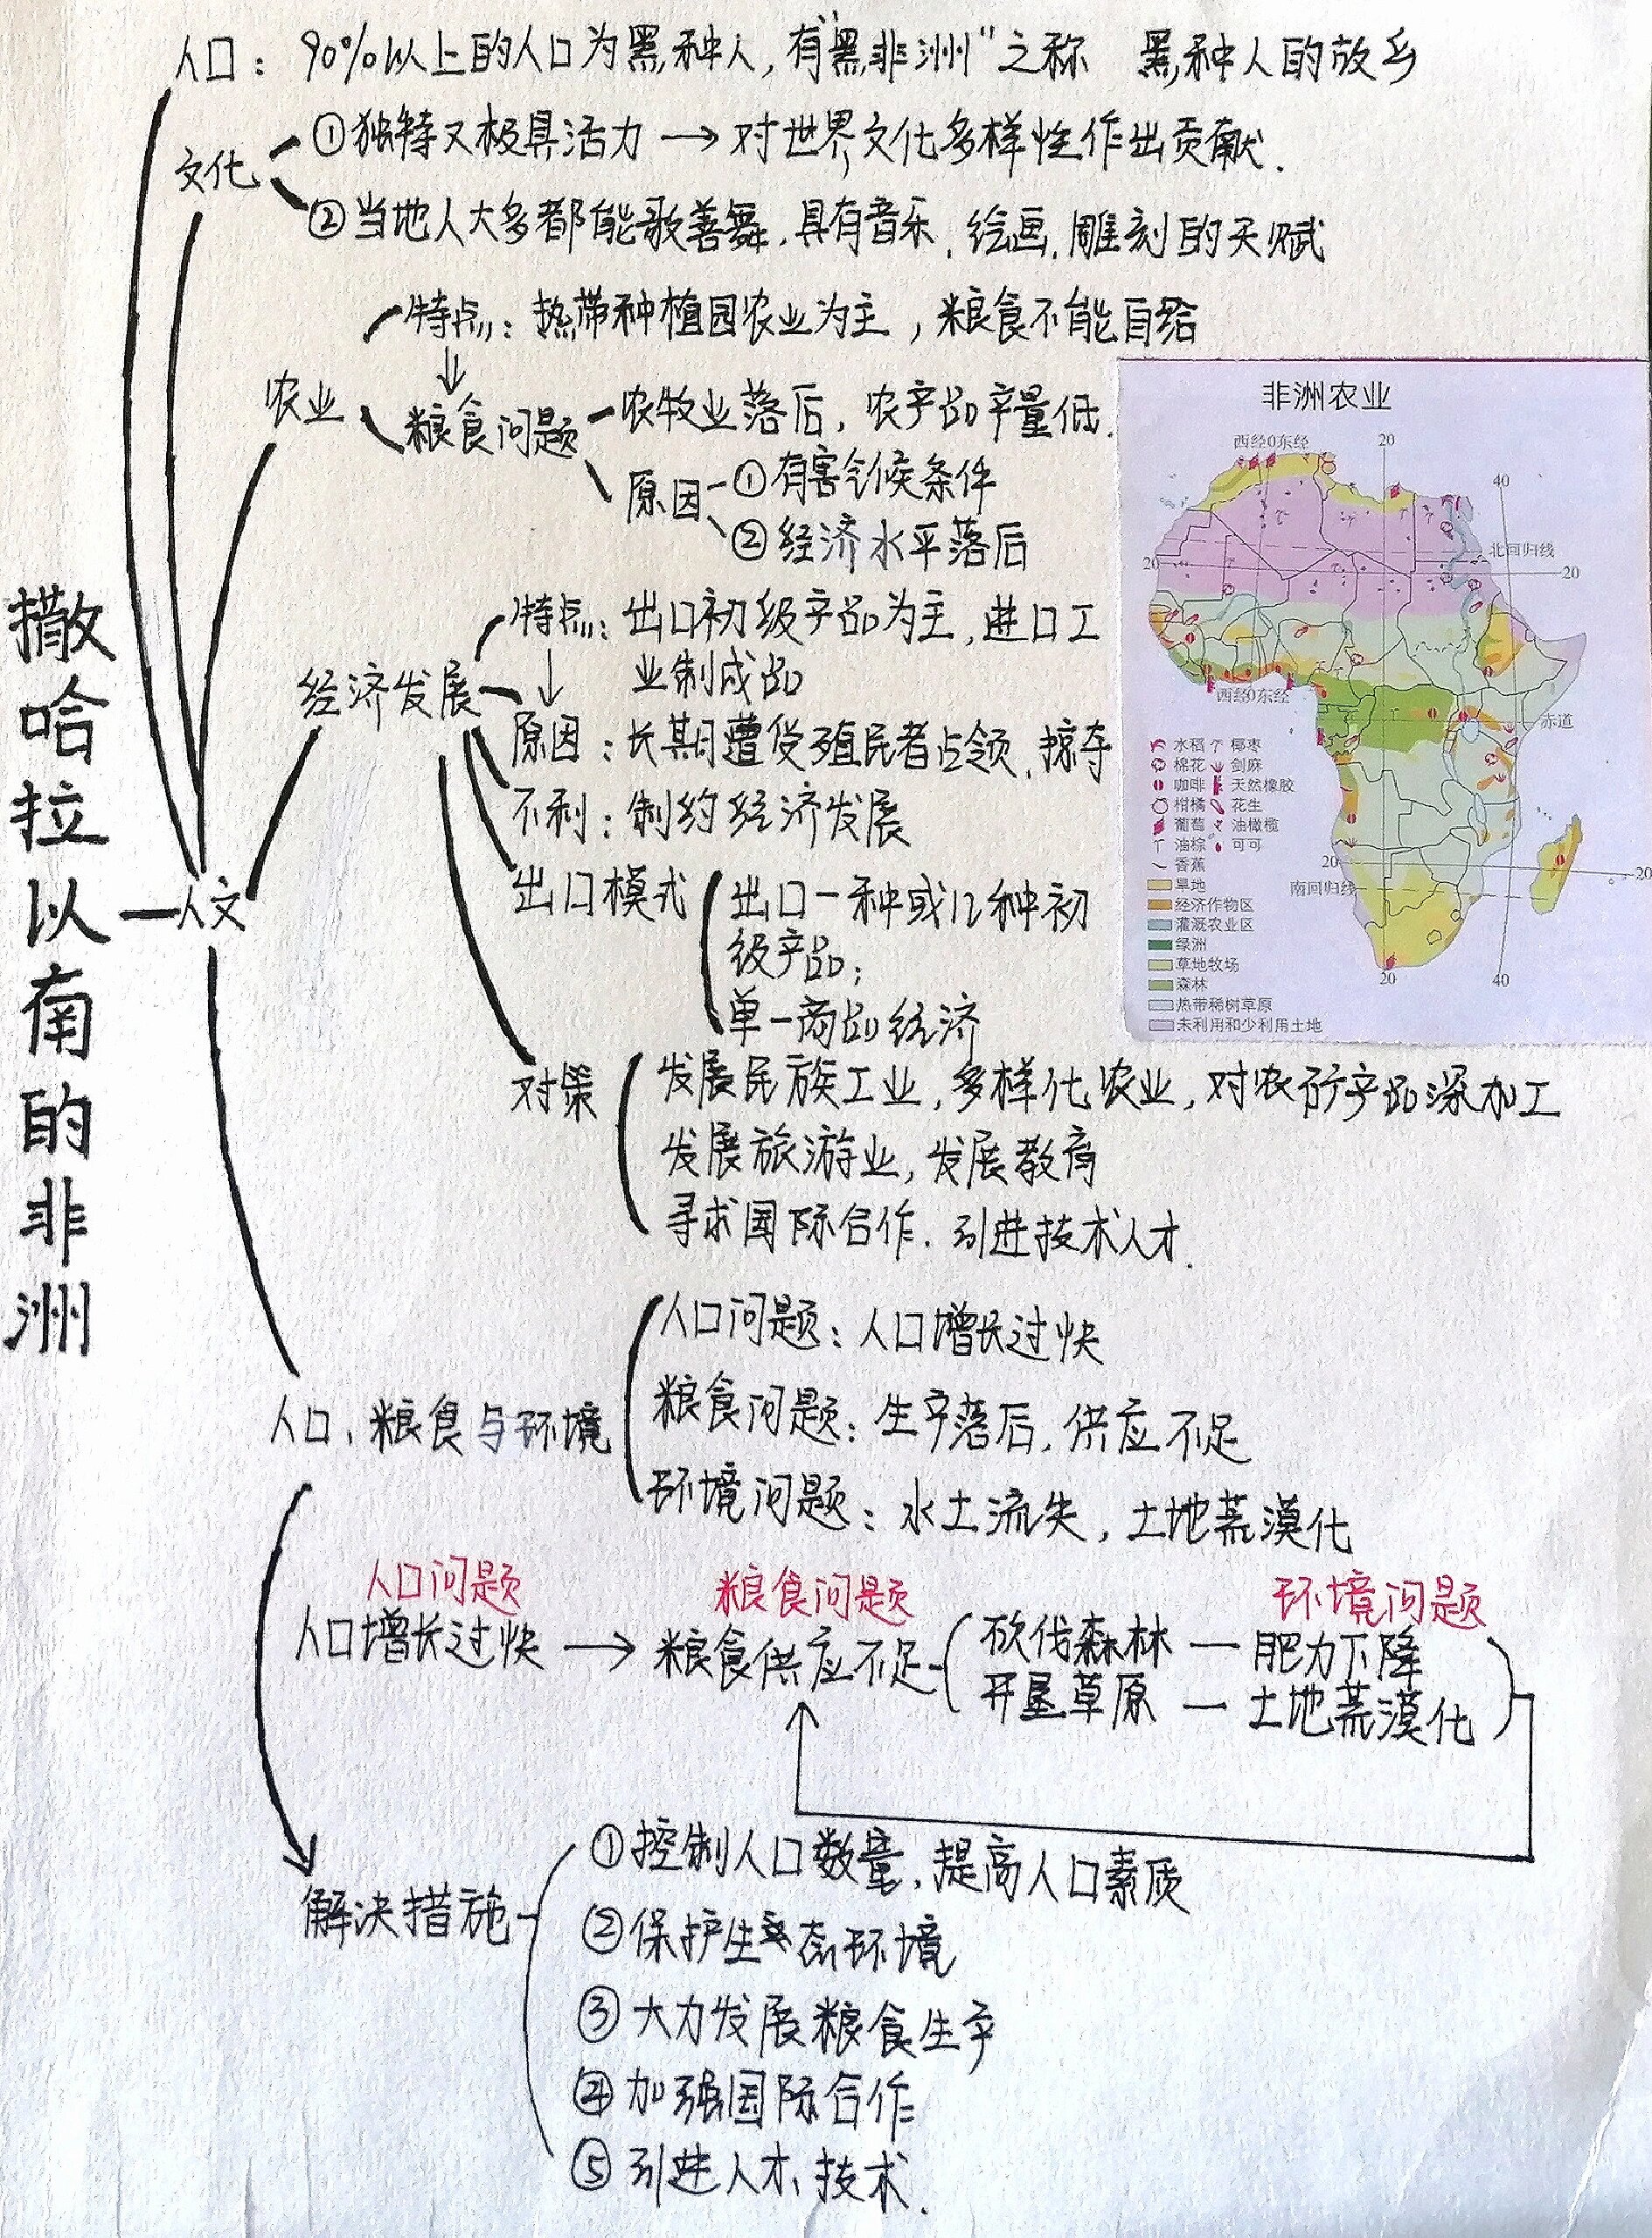 撒哈拉以南的非洲
人文
人口：90%以上的人口为黑种人，有"黑非洲"之称 黑种人的故乡
文化
①独特又极具活力→对世界文化多样性作出贡献.
②当地人大多都能歌善舞.具有音乐、绘画.雕刻的天赋
农业
特点：热带种植园农业为主，粮食不能自给
↓
粮食问题
农牧业落后，农产品产量低.
原因
①有害气候条件
②经济水平落后
经济发展
特点：出口初级产品为主，进口工
业制成品
↓
原因：长期遭受殖民者占领、掠夺
不利：制约经济发展
出口模式
出口一种或几种初
级产品；
单一商品经济
对策
发展民族工业，多样化农业，对农矿产品深加工
发展旅游业，发展教育
寻求国际合作.引进技术人才.
非洲农业
西经0东经
20
40
北回归线
20
20
西经0东经
赤道
水稻 椰枣
棉花 剑麻
咖啡 天然橡胶
柑橘 花生
葡萄 油橄榄
油棕 可可
香蕉
旱地
经济作物区
灌溉农业区
绿洲
草地牧场
森林
热带稀树草原
未利用和少利用土地
20
南回归线
20
20
40
人口、粮食与环境
人口问题：人口增长过快
粮食问题：生产落后，供应不足
环境问题：水土流失，土地荒漠化
人口问题 粮食问题 环境问题
人口增长过快→粮食供应不足
砍伐森林—肥力下降
开垦草原—土地荒漠化
解决措施
①控制人口数量，提高人口素质
②保护生态环境
③大力发展粮食生产
④加强国际合作
⑤引进人才、技术.